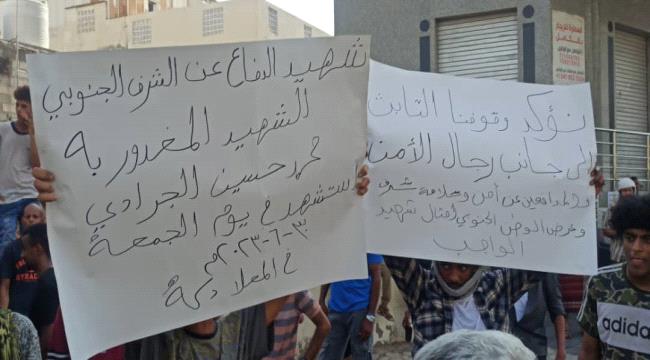 شهيد الدفاع عن الشرف الجنوبي
الشهيد المغدور به
محمد حسين الجرادي
استشهد في يوم الجمعة
٣٠-٦-٢٠٢٣م
في المعلا
نؤكد وقوفنا الثابت
إلى جانب رجال الأمن
والمدافعين عن أمن وسلامة شرف
وعرض الوطن الجنوبي أمثال شهيد
الواجب
adidas